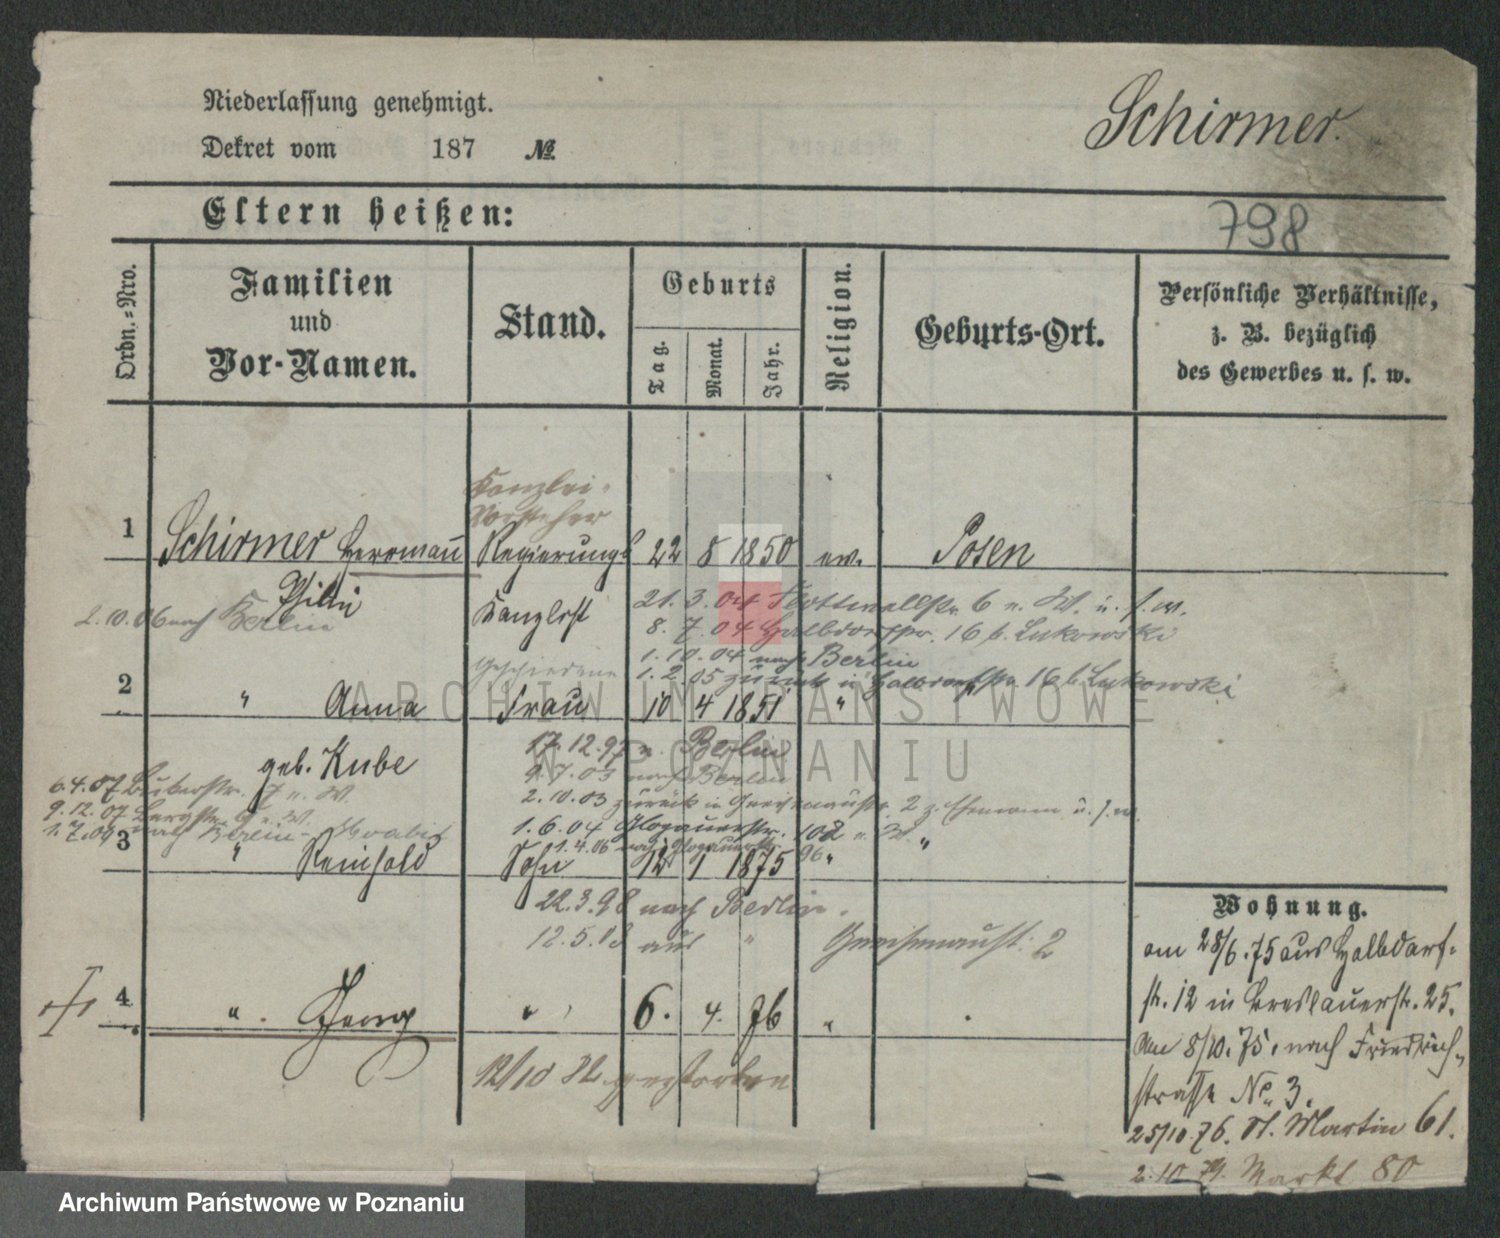 Niederlassung genehmigt.
Dekret vom 187 №
Schirmer.
Eltern heißen:
798
Ordn.=Nro.
Familien
und
Vor-Namen.
Stand.
Geburts
Tag.
Monat.
Jahr.
Religion.
Geburts-Ort.
Persönliche Verhältnisse,
z. B. bezüglich
des Gewerbes u. s. w.
Kanzlei-
Vorsteher
1 Schirmer Herrmann Regierungs 22 8 1850 ev. Posen
2.10.06 nach Berlin
Kanzlist
21. 3. 04 Flottwellstr. 6 u. W. u. s. w.
8. 7. 04 Halbdorfstr. 16 b. Lukowski
1. 10. 04 nach Berlin
Geschiedene
1. 2. 05 zurück u Halbdorfstr 16 b. Lukowski
2 " Anna Frau 10 4 1851 "
geb. Kube
17. 12. 97 n. Berlin
9. 7. 03 nach Berlin
2. 10. 03 zurück in Gneisenaustr. 2 z. Ehemann u. s. w.
1. 6. 04 Glogauerstr. 102 u. W.
6.4.07
9.12.07 Bergstr.
1.7.09 nach Berlin-Moabit
1. 4. 06 nach Glogauerstr. 96
3 " Reinhold Sohn 12 1 1875 " "
22. 3. 98 nach Berlin.
12. 5. 03 aus " Gneisenaust. 2
4 " Georg " 6. 4. 76 "
12/10 82 gestorben
Wohnung.
am 28/6. 75 aus Halbdorf-
str. 12 in Breslauerstr. 25.
Am 8/10. 75. nach Friedrich-
strasse No. 3.
25/10. 76. St. Martin 61.
2. 10 79. Markt 80
ARCHIWUM PAŃSTWOWE
W POZNANIU
Archiwum Państwowe w Poznaniu